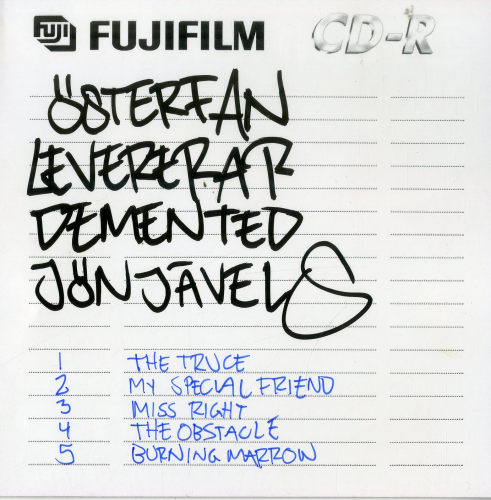 FUJI FUJIFILM CD-R
ÖSTERFAN
LEVERERAR
DEMENTED
JÖNJÄVELS
1 THE TRUCE
2 MY SPECIAL FRIEND
3 MISS RIGHT
4 THE OBSTACLE
5 BURNING MARROW